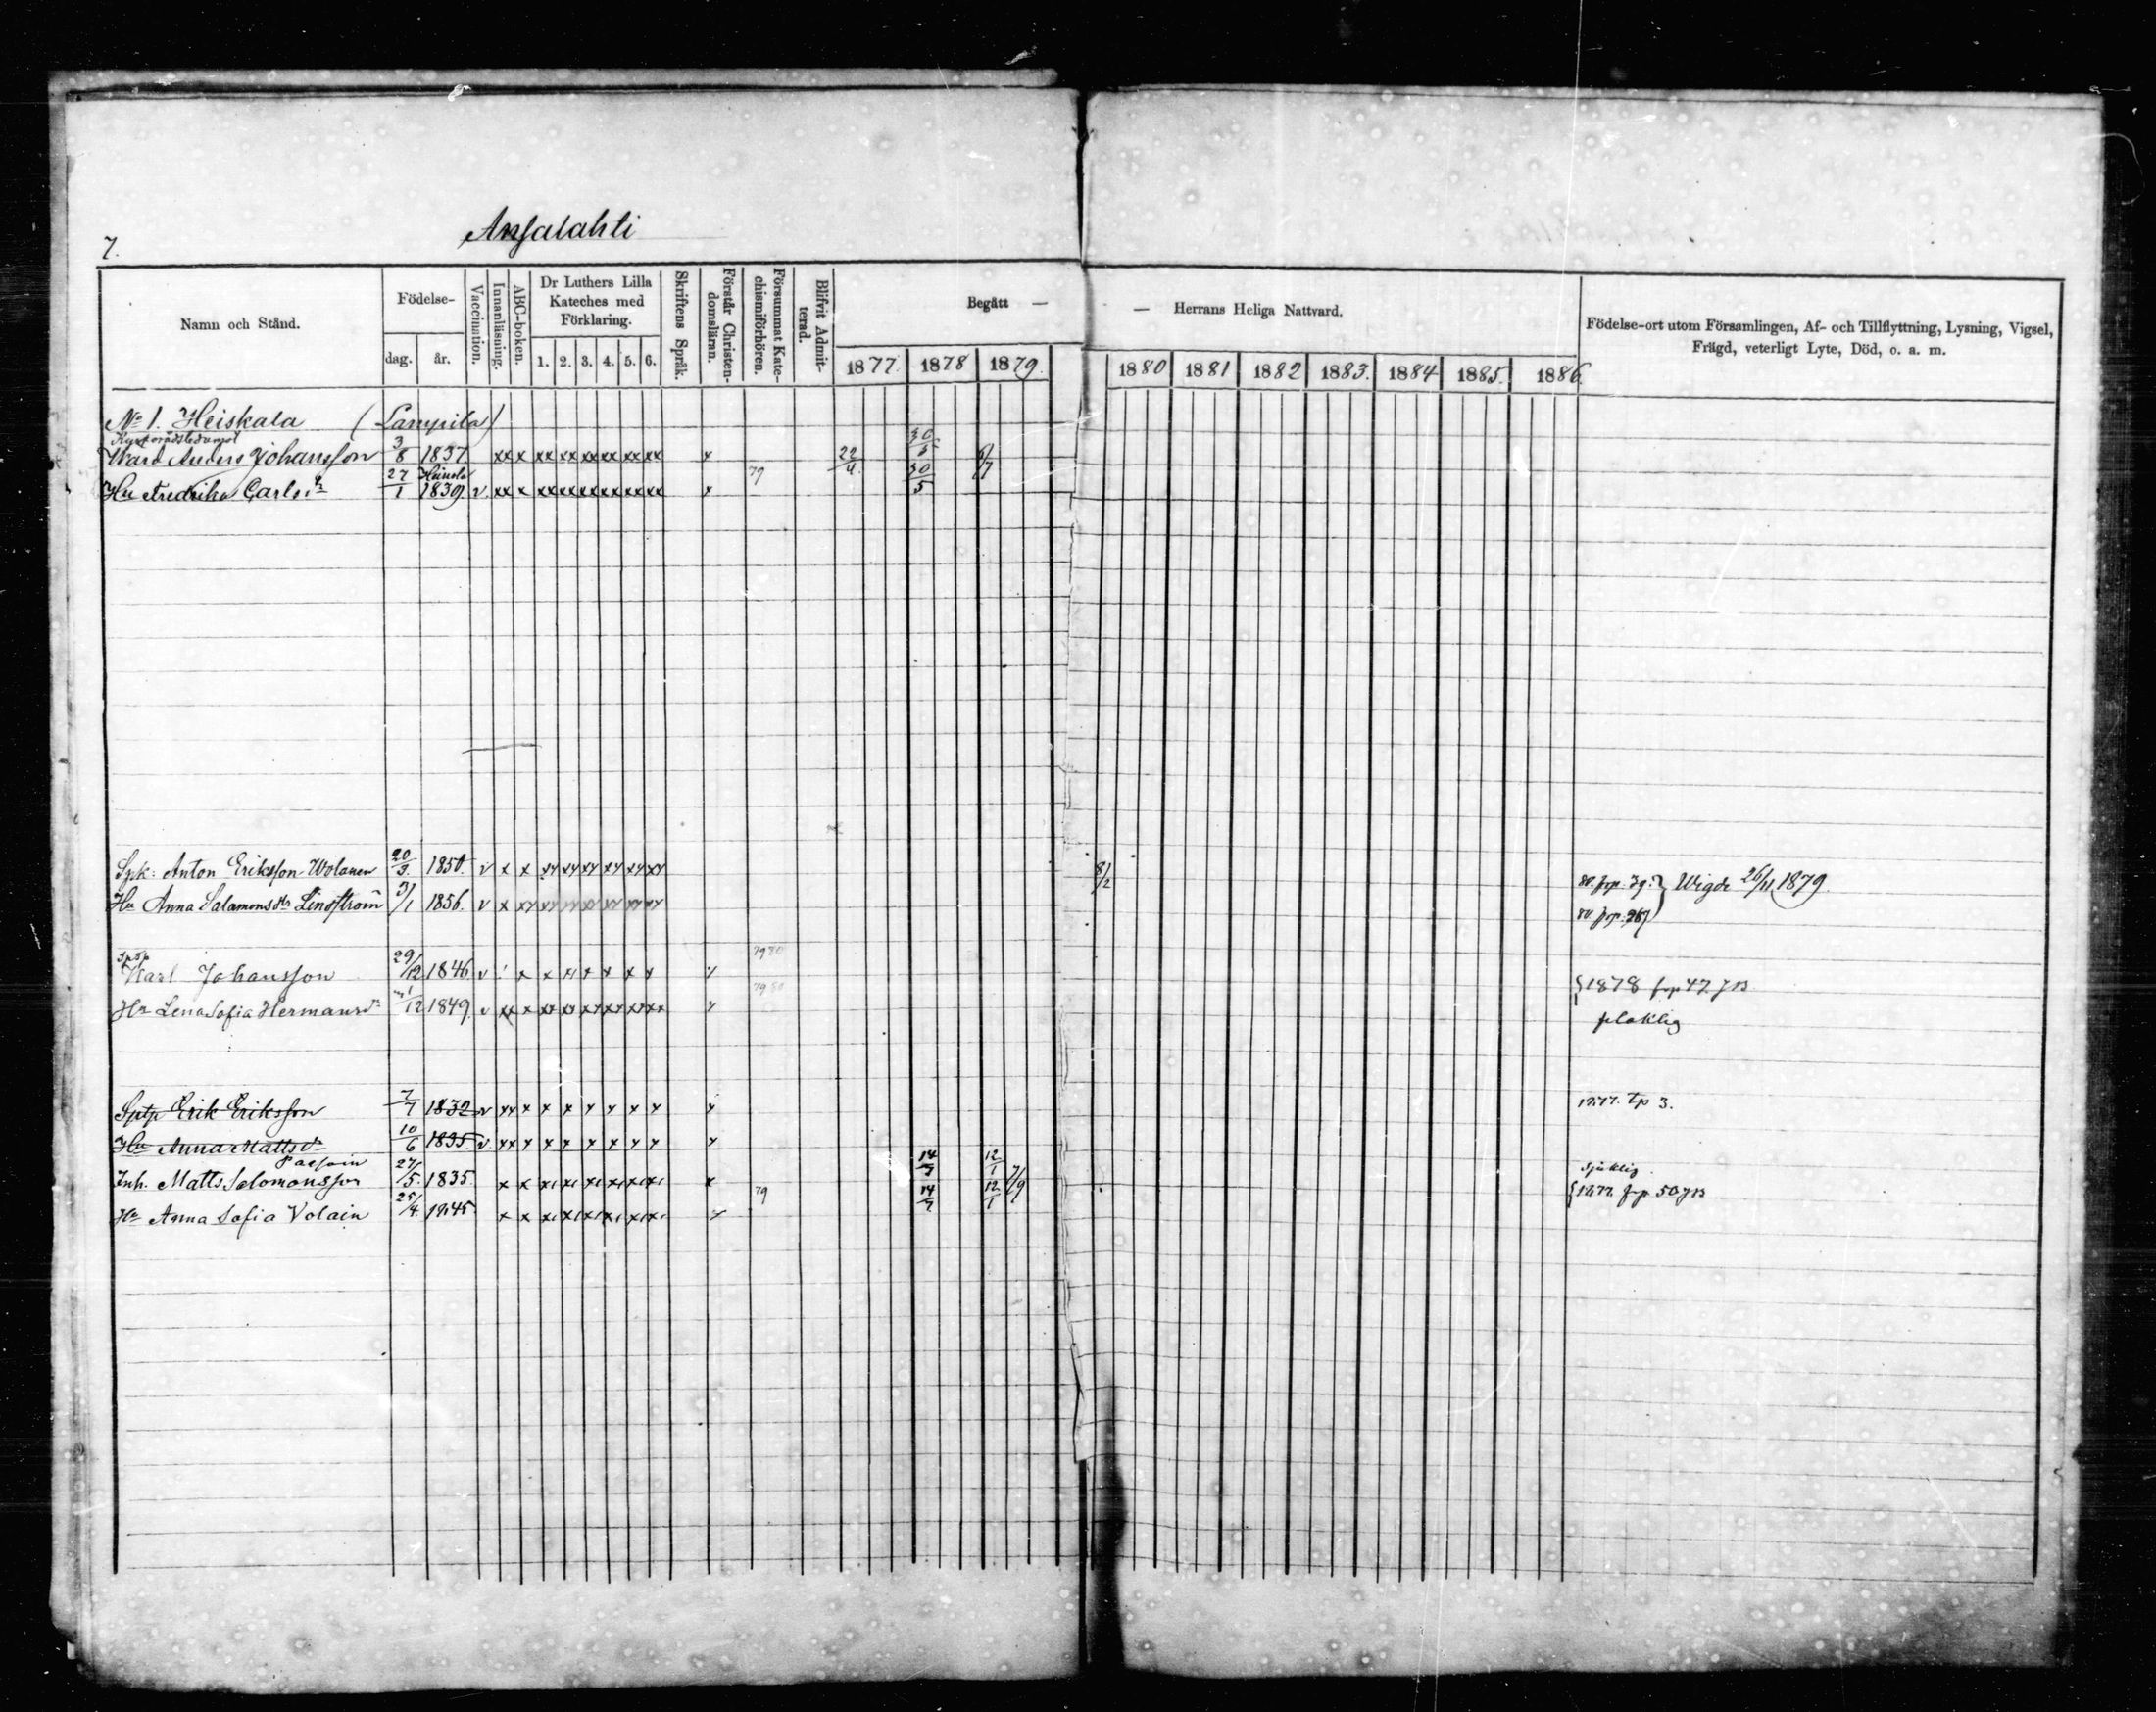 7.
Ansalahti
Namn och Stånd.
Födelse-
dag.
år.
Vaccination.
Innanläsning.
ABC-boken.
Dr Luthers Lilla
Kateches med
Förklaring.
1. 2. 3. 4. 5. 6.
Skriftens Språk.
Förstår Christen-
domsläran.
Försummat Kate-
chismiförhören.
Blifvit Admit-
terad.
Begått —
— Herrans Heliga Nattvard.
1877. 1878 1879. 1880 1881 1882 1883. 1884 1885. 1886.
Födelse-ort utom Församlingen, Af- och Tillflyttning, Lysning, Vigsel,
Frägd, veterligt Lyte, Död, o. a. m.
No 1. Heiskala (Lampila)
Anders Johansson 3/8 1837 xx x xx xx xx xx xx xx x 22/4 30/5
Heinola
Hu Fredrika Carlsdr 27/1 1839 v. xx x xx xx xx xx xx xx x 79 30/5
Spk: Anton Eriksson Wolanen 20/3. 1850. v x x xx xx xx xx xx xx 8/2
Hu Anna Salamonsdtr Lindström 3/1 1856. v x xx xx xx xx xx xx xx
Wigde 26/11 1879.
Karl Johansson 29/12 1846 v x x x x x x x 79 80
Hu Lena Sofia Hermansdr 1/12 1849. v xx x xx xx xx xx xx xx x 79 80
1878 frp 47.
Sptp Erik Eriksson 7/7 1832 v xx x x x x x x x x tp 3.
Hu Anna Mattsdr 10/6 1835. v. xx x x x x x x x x
Inh. Matts Salomonsson 27/5. 1835. x x x x x x x x x 14/7 12/1 sjuklig.
Hu Anna Sofia Volain 25/4. 1845 x x x x x x x x x 79 14/7 12/1 7/9 1877. frp. 50